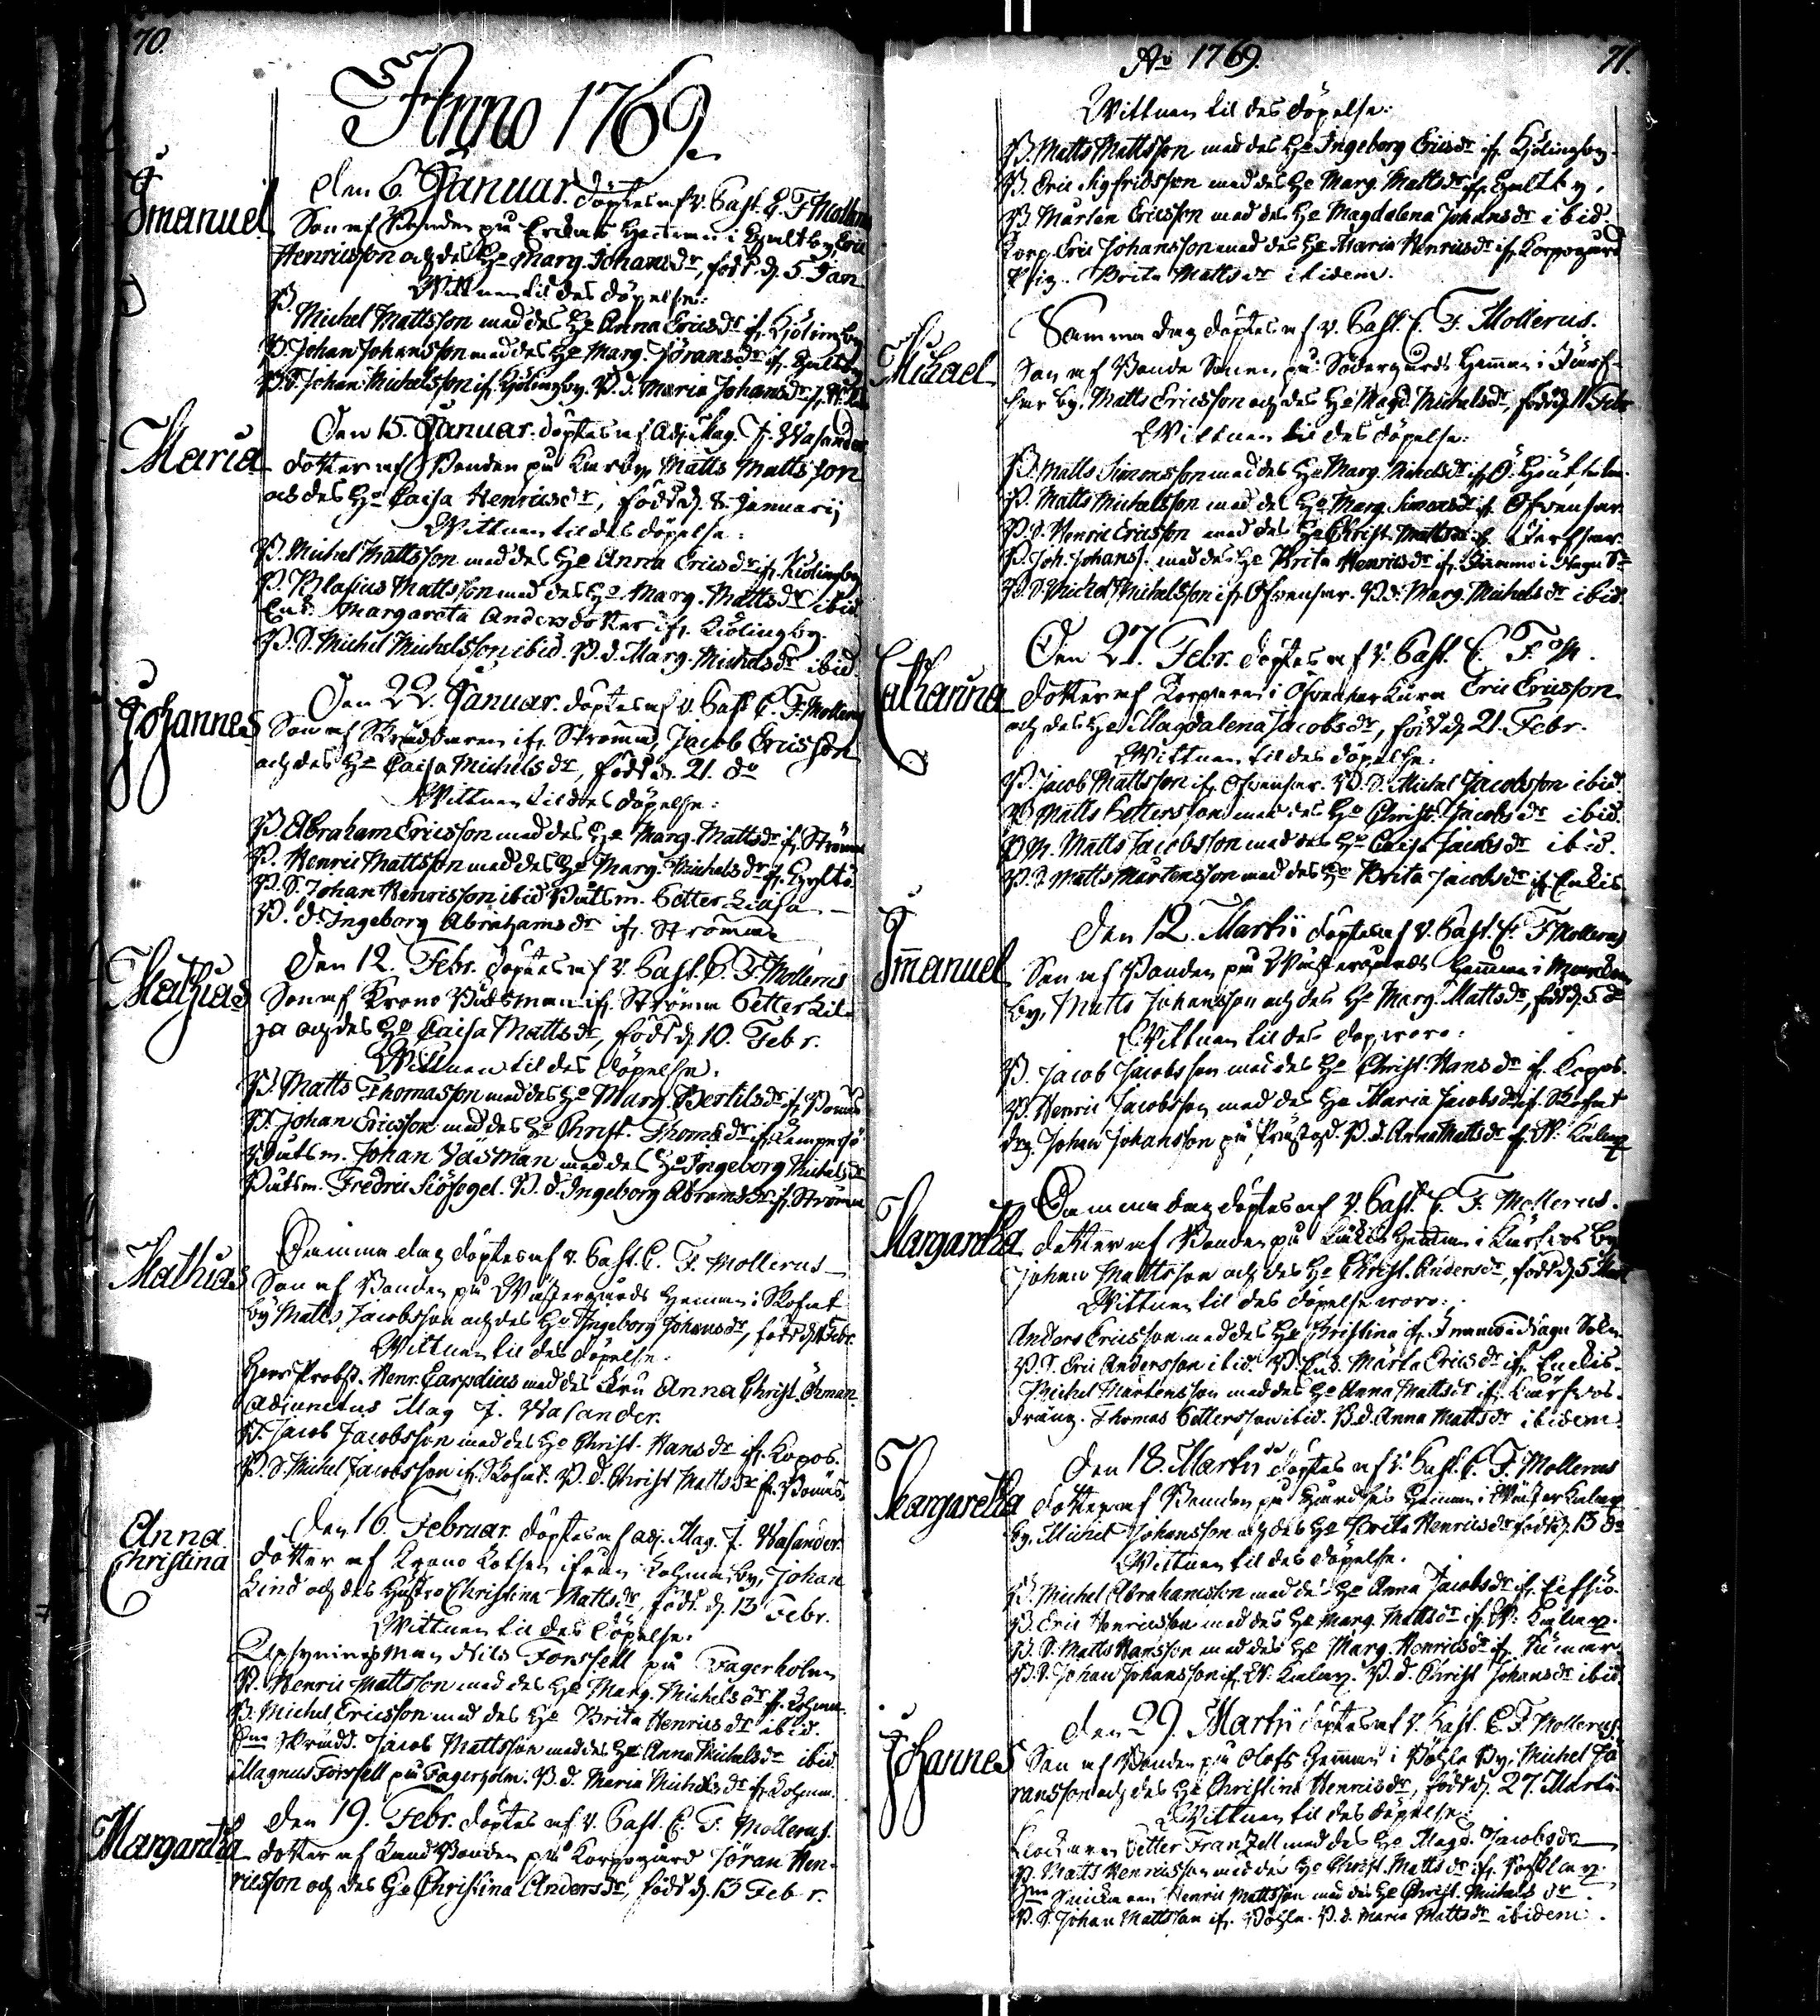 70.
Anno 1769.
Imanuel
Den 6. Januar. döptes af V. Past. E. F. Mollerus
Son af Bonden på Erckas Hemman i Hultby, Eric
Henricsson och des Ho Marg. Johansdr, född d. 5. Jan
Wittnen til des döpelse:
B. Michel Mattsson med des Ho Anna Ericsdr ifr. Kjölingby
B. Johan Johansson med des Ho Marg. Jöransdr ifr. Hultby
B.S. Johan Michelsson ifr. Kjölingby. B. d. Maria Johansdr
Maria
Den 15. Januar. döptes af Adj. Mag. J. Wasander
dotter af Bonden på Kærby Matts Mattsson
och des Ho Caisa Henricsdr, född d. 8. Januarij
Wittnen til des döpelse:
B. Michel Mattsson med des Ho Anna Ericsdr ifr. Kiölingby
B. Blasius Mattsson med des Ho Marg. Mattsdr ibid
Enk. Margareta Andersdotter ifr. Kiölingby.
B. S. Michel Michelsson ibid. B. d. Marg. Michelsdr ibid.
Johannes
Den 22. Januar. döptes af V. Past. E. F. Mollerus
Son af Skräddaren ifr. Strömma, Jacob Ericsson
och des Ho Caisa Michelsdr, född d. 21. do
Wittnen til des döpelse:
B. Abraham Ericsson med des Ho Marg. Mattsdr ifr. Strömma
B. Henric Mattsson med des Ho Marg. Michelsdr ifr. Hyltö
B. S. Johan Henricsson ibid Båtsm. Petter Liäsa
B. d. Ingeborg Abrahamsdr ifr. Strömma
Mathias
Den 12. Febr. döptes af V. Past. E. F. Mollerus
Son af Krono Båtsman ifr. Strömma Petter Lil-
ja och des Ho Caisa Mattsdr, född d. 10. Febr.
Wittnen til des döpelse.
B. Matts Thomasson med des Ho Marg. Bertilsdr ifr.
B. Johan Ericsson med des Ho Christ. Thomsdr ifr. Kempersö
Båtsm. Johan Väsman med des Ho Ingeborg Michelsdr
Båtsm. Fredric Siöfogel. B. d. Ingeborg Abramsdr ifr. Strömma
Mathias
Samma dag döptes af V. Past. E. F. Mollerus
Son af Bonden på Wästergårds Heman i Skofnt
by Matts Jacobsson och des Ho Ingeborg Johansdr, född d. Febr.
Wittnen til des döpelse.
Herr Probst. Henr. Carpelius med des Fru Anna Christ. Öhman.
Adiunctus Mag. J. Wasander.
B. Jacob Jacobsson med des Ho Christ. Hansdr ifr. Kopos.
B. S. Michel Jacobsson ifr. Skofnt. B. d. Christ Mattsdr ifr.
Anna
Christina
Den 16. Februar. döptes af adj. Mag. J. Wasander.
dotter af Krono Lotsen ifrån Lohmby, Johan
Lind och des Hustro Christina Mattsdr, född d. 13 Febr.
Wittnen til des döpelse.
Upsyningsman Nils Forssell på Fagerholm
B. Henric Mattsson med des Ho Marg. Michelsdr ifr. Lohm.
B. Michel Ericsson med des Ho Brita Henricsdr ibid.
Skrädd. Jacob Mattsson med des Ho Anna Michelsdr ibid.
Magnus Forssell på Fagerholm. B. d. Maria Michelsdr ifr. Lohm.
Margaretha
Den 19. Febr. döptes af V. Past. E. F. Mollerus.
dotter af Land Bonden på Korpogård Jöran Hen-
ricsson och des Ho Christina Andersdr, född d. 13 Febr.
Ao 1769.
71.
Wittnen til des döpelse:
B. Matts Mattsson med des Ho Ingeborg Ericsdr ifr. Kjölingby.
B. Eric Sigfridsson med des Ho Marg. Mattsdr ifr. Hultby.
B. Mårten Ericsson med des Ho Magdalena Johansdr ibid.
Torp. Eric Johansson med des Ho Maria Henricsdr ifr. Korpogård
Pig. Brita Mattsdr ibidem.
Michael
Samma dag döptes af V. Past. E. F. Mollerus.
Son af Bonde Sonen på Södergårds Heman i
by. Matts Ericsson och des Ho Magd. Michelsdr, född d. 11 Febr
Wittnen til des döpelse:
B. Matts Simonsson med des Ho Marg. Michelsdr ifr.
B. Matts Michelsson med des Ho Marg. Simonsdr ifr. Ofvenhar.
B. S. Henric Ericsson med des Ho Christ. Mattsdr ifr.
B. Joh. Johanss. med des Ho Brita Henricsdr ifr. i Nagu Sn
B. S. Michel Michelsson ifr. Ofvenhar. B. d. Marg. Michelsdr ibid.
Catharina
Den 27. Febr. döptes af V. Past. E. F. M.
dotter af Torparen i Ofvenhar Eric Ericsson
och des Ho Magdalena Jacobsdr, född d. 21. Febr.
Wittnen til des döpelse:
B. Jacob Mattsson ifr. Ofvenhar. B. S. Michel Jacobsson ibid.
B. Matts Pettersson med des Ho Christ. Jacobsdr ibid.
B. M. Matts Jacobsson med des Ho Caisa Jacobsdr ibid.
B. S. Matts Mårtensson med des Ho Brita Jacobsdr ifr. Enkis
Imanuel
Den 12. Martii döptes af V. Past. E. F. Mollerus
Son af Bonden på Wästergårds Heman i
by, Matts Johansson och des Ho Marg. Mattsdr, född d. 5. do
Wittnen til des dop voro:
B. Jacob Jacobsson med des Ho Christ. Hansdr ifr. Kopos.
B. Henric Jacobsson med des Ho Maria Jacobsdr ifr. Skofnt
drg. Johan Johansson på Prästgd. B. d. Anna Mattsdr ifr. W:
Margaretha
Samma dag döptes af V. Past. E. F. Mollerus.
dotter af Bonden på Heman i by
Johan Mattsson och des Ho Christ. Andersdr, född d. 5
Wittnen til des döpelse voro:
Anders Ericsson med des Ho Christina ifr. i Nagu Sokn
B. S. Eric Andersson ibid. B. Enk. Märta Ericsdr ifr. Enckis.
Michel Mårtensson med des Ho Anna Mattsdr ifr.
dräng. Thomas Pettersson ibid. B. d. Anna Mattsdr ibidem.
Margaretha
Den 18. Martii döptes af V. Past. E. F. Mollerus
dotter af Bonden på Heman i Wäster
by, Michel Johansson och des Ho Brita Henricsdr född d. 13 do
Wittnen til des döpelse.
B. Michel Abrahamsson med des Ho Anna Jacobsdr ifr.
B. Eric Henricsson med des Ho Marg. Mattsdr ifr. W:
B. S. Matts Hansson med des Ho Marg. Henricsdr ifr.
B. S. Johan Johansson ifr. W: B. d. Christ Johansdr ibid.
Johannes
den 29. Martii döptes af V. Past. E. F. Mollerus.
Son af Bonden på Olofs Heman i by, Michel Jö
ransson och des Ho Christina Henricsdr, född d. 27. Martii
Wittnen til des döpelse:
Klockaren Petter Franzell med des Ho Magd. Jacobsdr
B. Matts Henricsson med des Ho Christ. Mattsdr ifr.
Henric Mattsson med des Ho Christ. Michelsdr.
B. S. Johan Mattsson ifr. B. d. Maria Mattsdr ibidem.